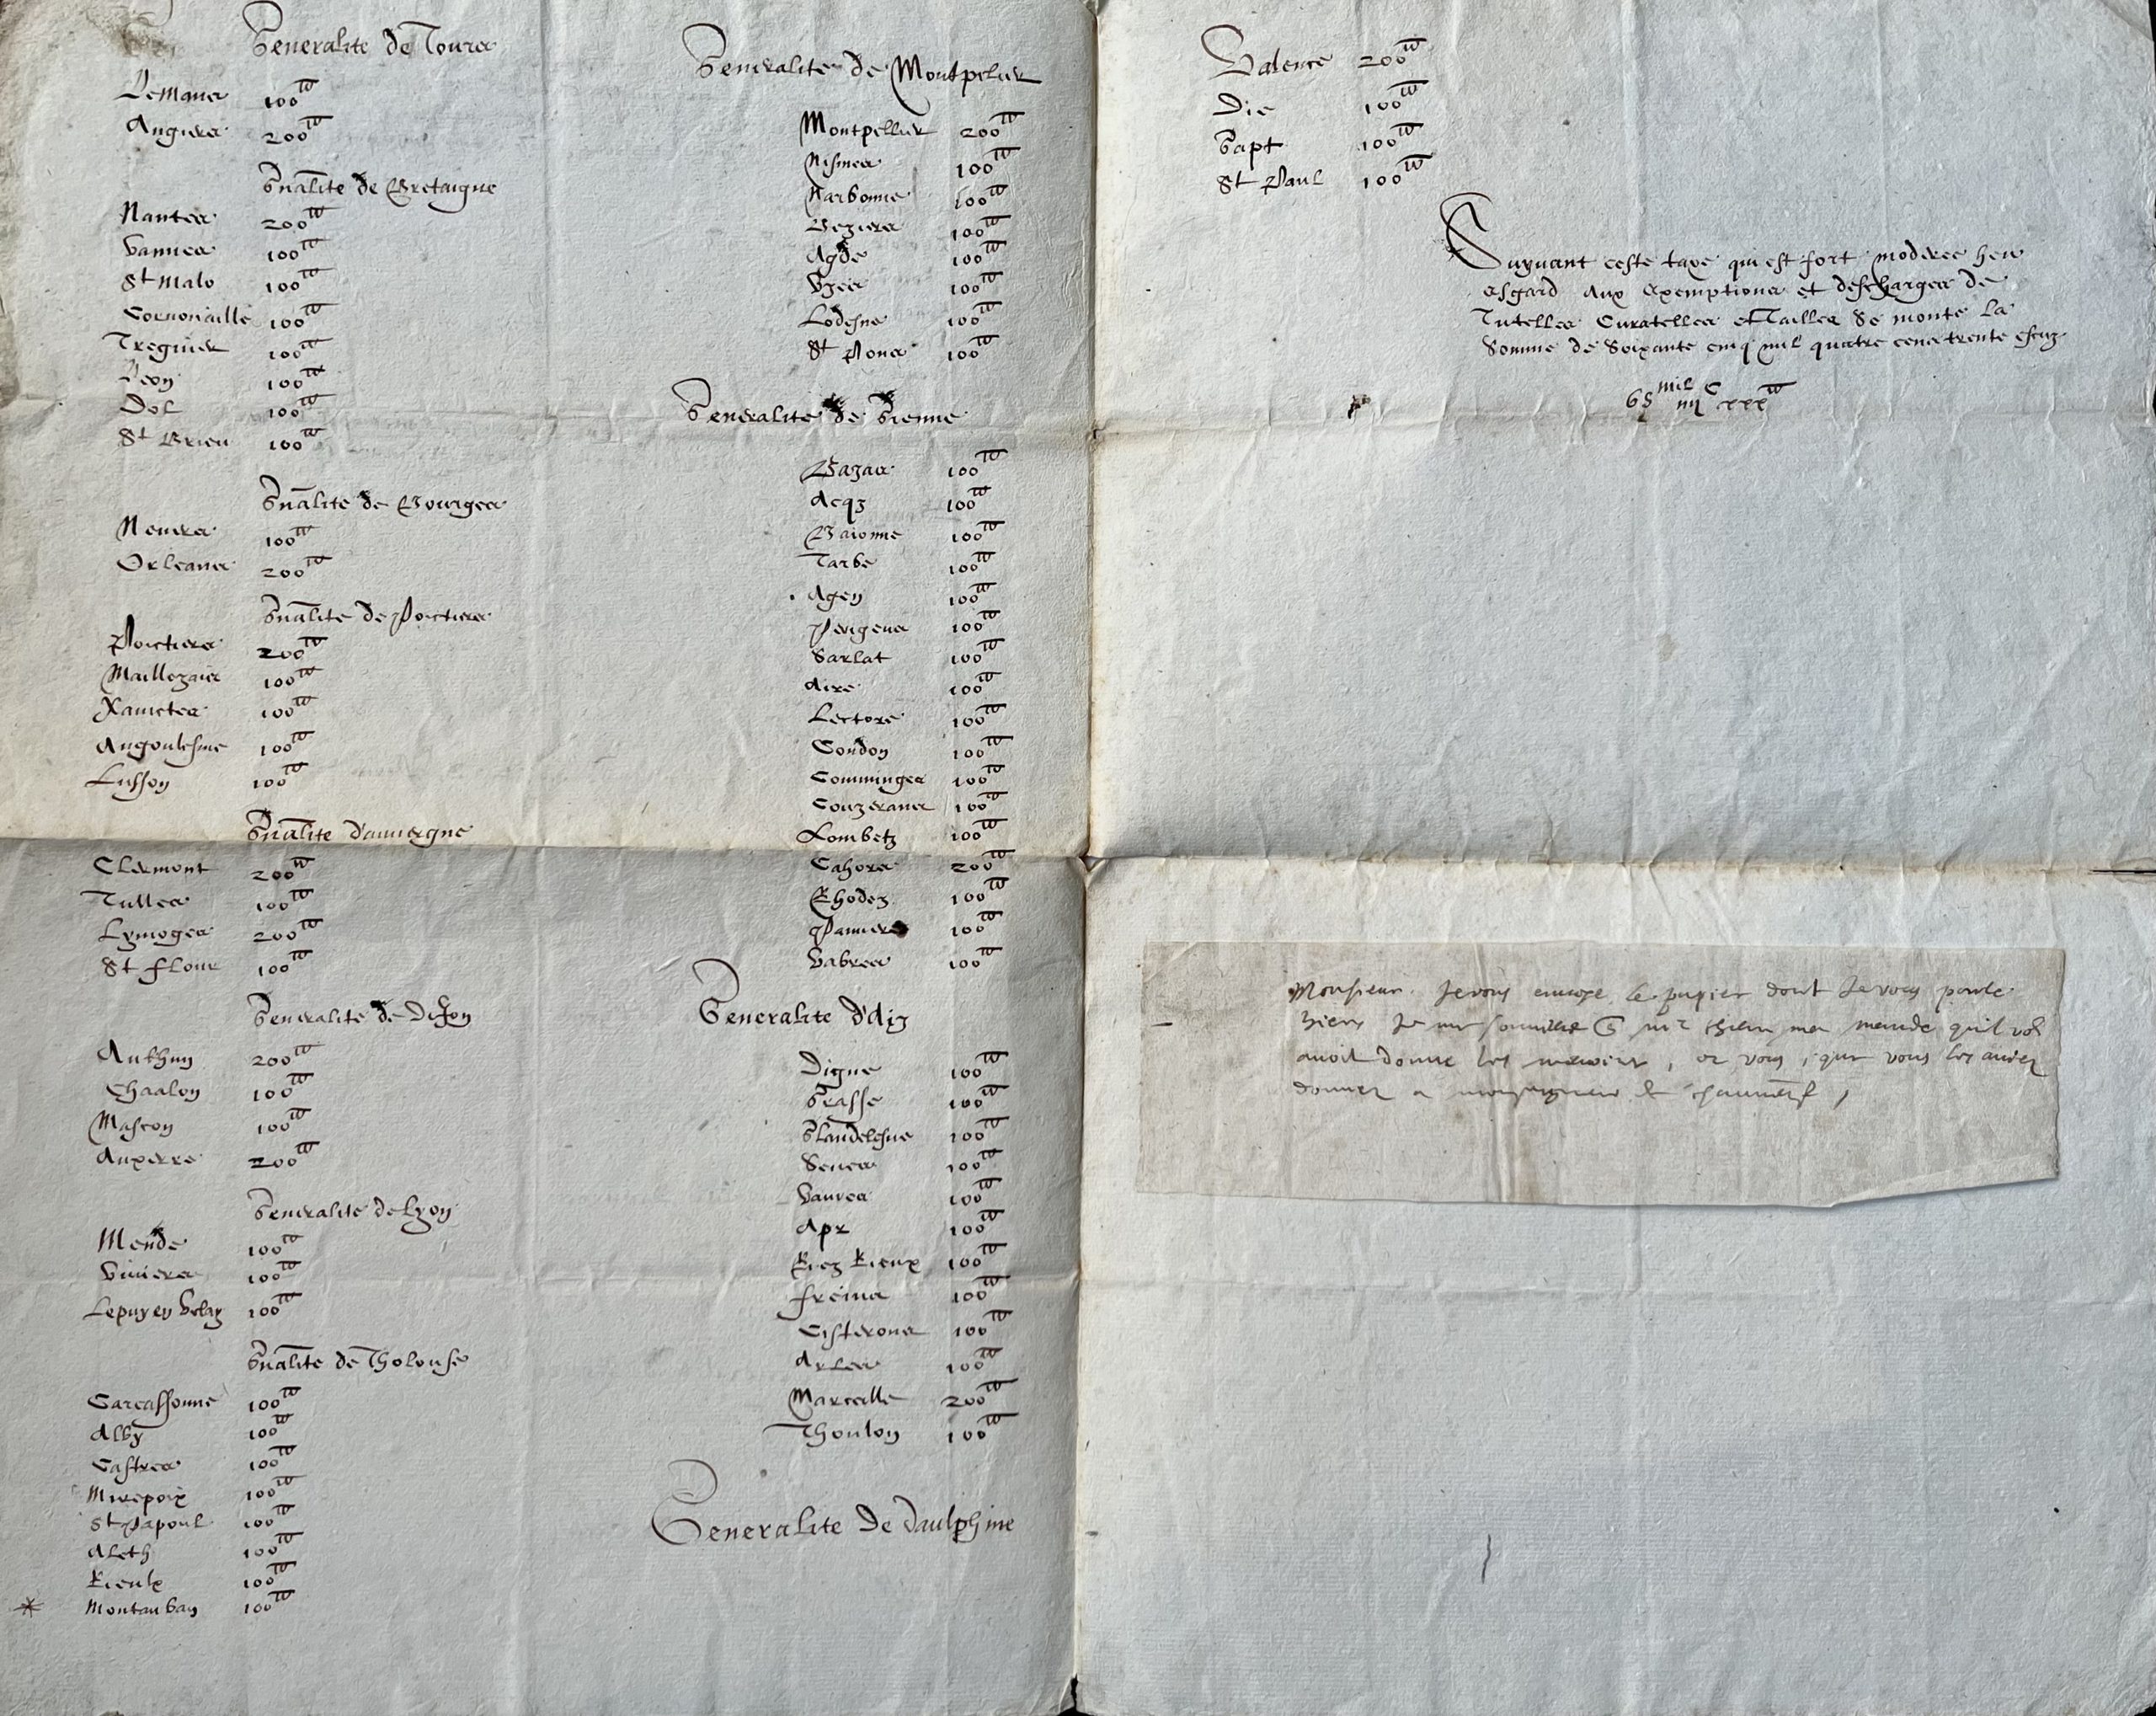 Generalite de Tours
Lemans 100
Angiers 200
Gnalite de Bretaigne
Nantes 200
Vannes 100
St Malo 100
Cornouaille 100
Treguier 100
Leon 100
Dol 100
St Brieu 100
Gnalite de Bourges
Nevers 100
Orleans 200
Gnalite de Poictiers
Poictiers 200
Maillezais 100
Xainctes 100
Angoulesme 100
Lusson 100
Gnalite d'auvergne
Clermont 200
Tulles 100
Lymoges 200
St Flour 100
Generalite de Dijon
Authun 200
Chaalon 100
Mascon 100
Auxerre 200
Generalite de Lyon
Mende 100
Viviers 100
Lepuy en Velay 100
Gnalite de Tholouse
Carcassonne 100
Alby 100
Castres 100
Mirepoix 100
St Papoul 100
Aleth 100
Rieulx 100
* Montauban 100
Generalite de Montpelier
Montpellier 200
Nismes 100
Narbonne 100
Beziers 100
Agde 100
Uzes 100
Lodesve 100
St Pons 100
Generalite de Gienne
Bazas 100
Acqz 100
Baionne 100
Tarbe 100
Agen 100
Perigeux 100
Sarlat 100
Aire 100
Lectore 100
Condon 100
Comminges 100
Couzerans 100
Lombetz 100
Cahors 200
Rhodez 100
Pamiers 100
Vabres 100
Generalite d'Aix
Digne 100
Grasse 100
Glandesve 100
Senes 100
Vances 100
Apt 100
Riez Rieux 100
Freius 100
Cisterons 100
Arles 100
Marceille 200
Thoulon 100
Generalite de Daulphine
Valence 200
Die 100
Gapt 100
St Paul 100
Suyvant ceste taxe qui est fort moderee heu
esgard aux exemptions et descharges de
Tutelles Curatelles et Tailles Se monte La
Somme de Soixante cinq mil quatre cens trente escuz
65 mil iiii c xxx
Monsieur Je vous envoye le papier dont Je vous parle
mande quil vos
avoit donne les memoires, or vous, que vous les aviez
donnez a monseigneur de